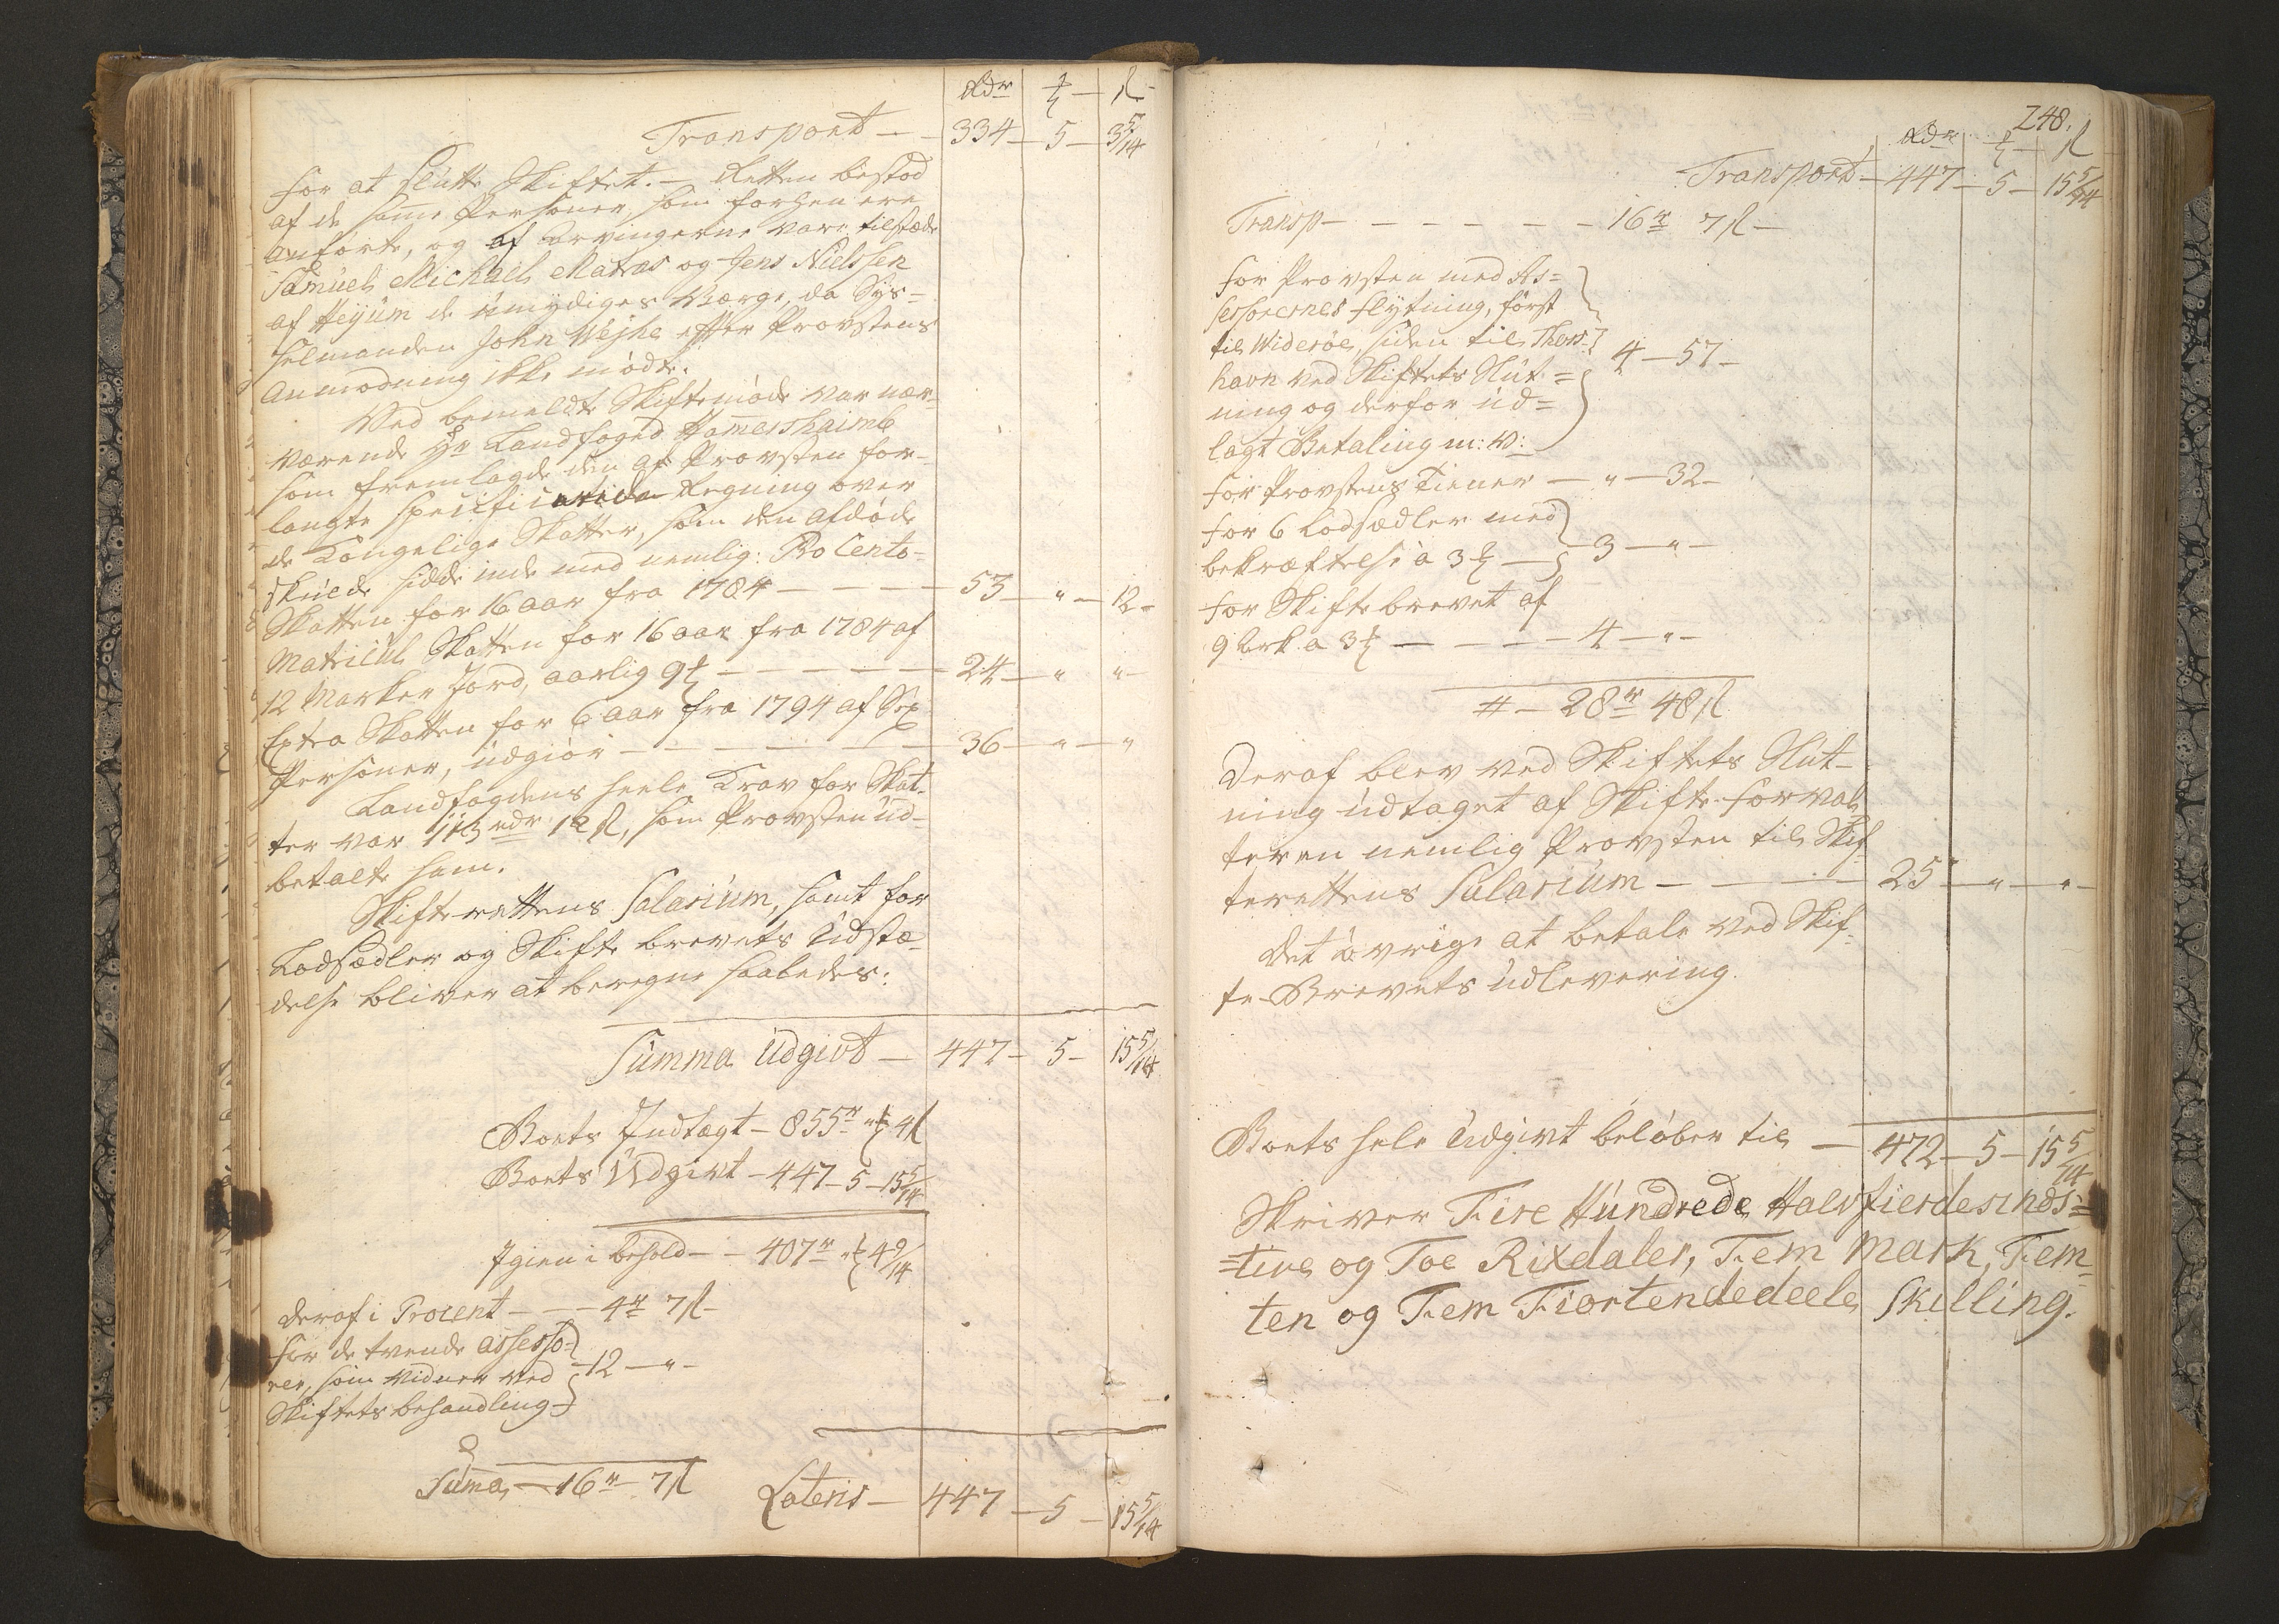 Rdr ꝳ ß
Transport — 334 — 5 — 3 5/14
for at slutte Skiftet. — Retten bestod
af de samme Personer, som forhen ere
anførte, og af Arvingerne vare tilstæde
Samuel Michael Matras og Jens Nielssen
af Heyum de umyndiges Værge, da Sys-
selmanden John Wejhe efter Provstens
Anmodning ikke mødte.
Ved bemeldte Skiftemøde var nær-
værende Hr Landfoged Hamershaimb
som fremlagde den af Provsten for-
langte specificerede Regning over
de Kongelige Skatter, som den afdøde
skulde sidde inde med nemlig: Pro Cento-
Skatten for 16 aar fra 1784 — — — 53 — " — 12 -
Matricul Skatten for 16 aar fra 1784 af
12 Marker Jord, aarlig 9 ꝳ — — — — 24 — " "
Extra Skatten for 6 aar fra 1794 af Sex
Personer, udgiør — — — — — 36 — " — "
Landfogdens heele Krav for Skat-
ter var 113 rdr 12 ß, som Provsten ud-
betalte ham.
Skifterettens Salarium, samt for
Lodsædler og Skifte brevets Udstæ-
delse bliver at beregne saaledes:
Summa Udgivt — 447 — 5 — 15 5/14
Boets Indtægt — 855 r " ꝳ 4 ß
Boets Udgivt — 447 — 5 — 15 5/14
Igien i behold — — 407 r " ꝳ 4 9/14
deraf i Procent — — — 4 r 7 ß —
for de tvende assesso-
rer, som Vidner ved
Skiftets behandling — 12 — " -
Suma, — 16 r — 7 ß
Lateris — 447 — 5 — 15 5/14
248.
Rdr ꝳ ß
Transport — 447 — 5 — 15 5/14
Transp — — — — — — 16 r 7 ß —
for Provsten med As=
sessorernes flytning, først
til Widerøe, siden til Thors-
havn ved Skiftets Slut=
ning og derfor ud=
lagt Betaling m: v: 4 — 57 —
for Provstens Tiener — " — 32 —
for 6 Lodsædler med
bekræftelse à 3 ꝳ — 3 — " —
for Skifte brevet af
9 Ark. a 3 ꝳ — — — — 4 — " —
# — 28 r 48 ß
Deraf blev ved Skiftets Slut-
ning udtaget af Skifte-forval-
teren nemlig Provsten til Skif-
terettens Salarium — — — — 25 — " — " —
Det øvrige at betale ved Skif-
te-Brevets Udlevering.
Boets hele Udgivt beløber til — 472 — 5 — 15 5/14
Skriver Fire Hundrede Halvfierdesinds=
=tive og Toe Rixdaler, Fem Mark, Fem-
ten og Fem Fiortendedeele Skilling.